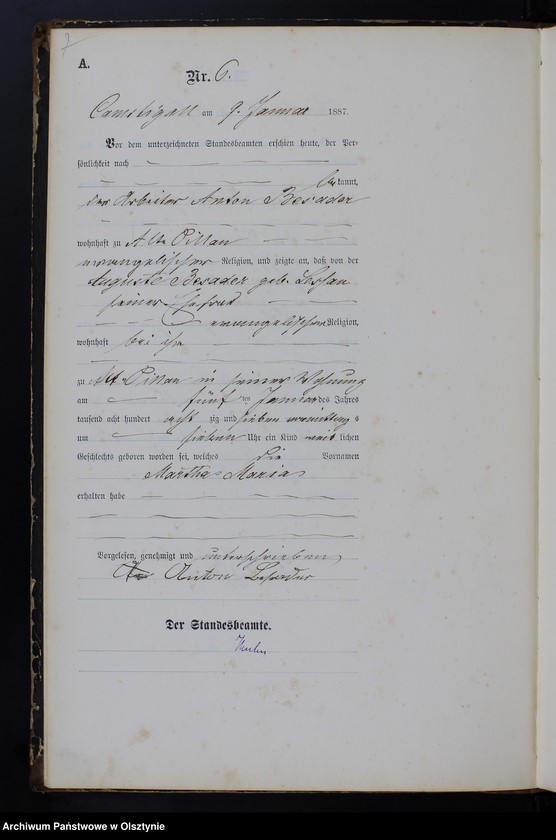 7
A.
Nr. 6.
Camstigall am 9. Januar 1887.
Vor dem unterzeichneten Standesbeamten erschien heute, der Per-
sönlichkeit nach
bekannt,
der Arbeiter Anton Besader
wohnhaft zu Alt Pillau
evangelischer Religion, und zeigte an, daß von der
Auguste Besader geb.
seiner Ehefrau
evangelischer Religion,
wohnhaft bei ihm
zu Alt-Pillau in seiner Wohnung
am fünf ten Januar des Jahres
tausend acht hundert acht zig und sieben vormittags
um sieben Uhr ein Kind weib lichen
Geschlechts geboren worden sei, welches die Vornamen
Martha Maria
erhalten habe
Vorgelesen, genehmigt und unterschrieben
Anton Besader
Der Standesbeamte.
Archiwum Państwowe w Olsztynie